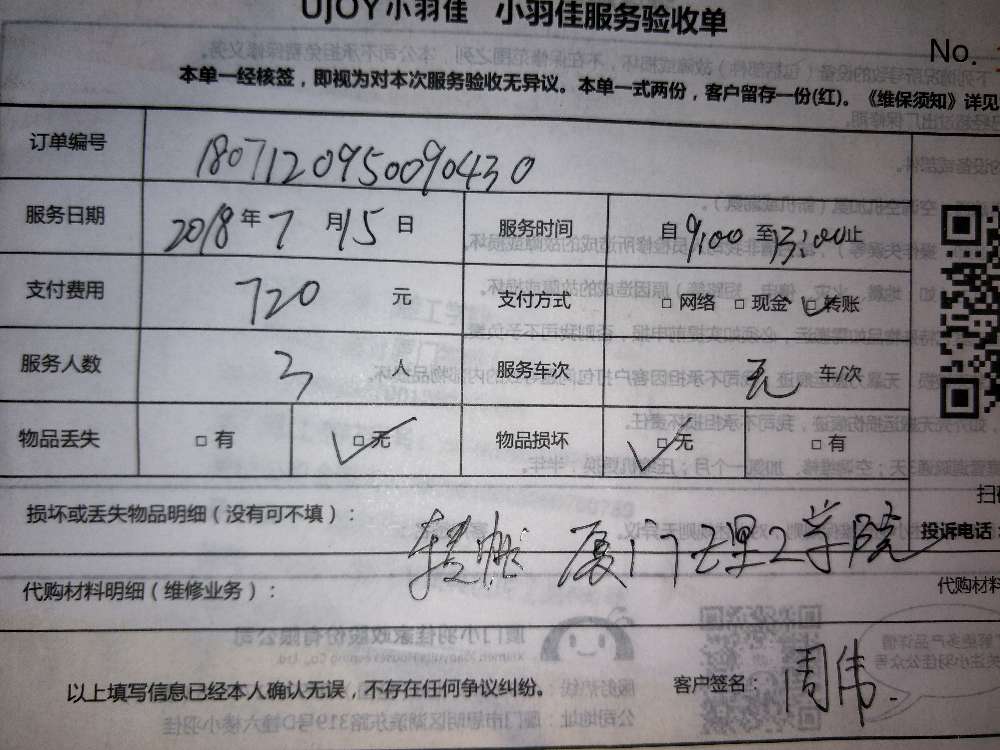 UJOY小羽佳 小羽佳服务验收单
No.
本单一经核签，即视为对本次服务验收无异议。本单一式两份，客户留存一份(红)。《维保须知》详见
订单编号 180712095009430
服务日期 2018年7月15日 服务时间 自9:00至13:00止
支付费用 720 元 支付方式 □网络 □现金 □转账
服务人数 3 人 服务车次 无 车/次
物品丢失 □有 □无 物品损坏 □无 □有
损坏或丢失物品明细（没有可不填）：
投诉电话：
厦门理工学院
代购材料明细（维修业务）：
代购材料
以上填写信息已经本人确认无误，不存在任何争议纠纷。 客户签名：周伟.